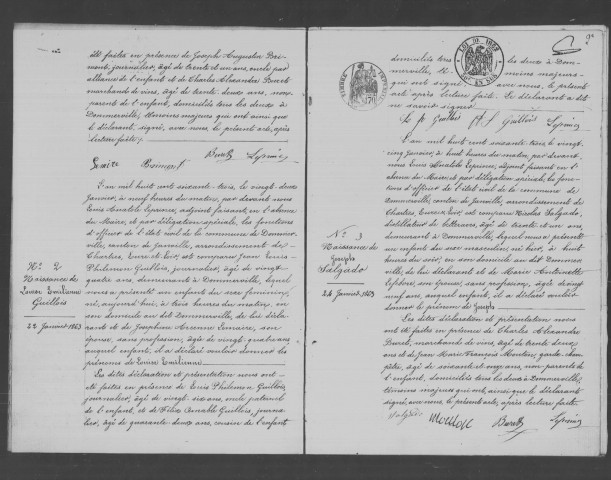 été faites en présence de Joseph Augustin Boi-
mont, journalier, âgé de trente et un ans, oncle par
alliance de l'enfant et de Charles Alexandre Buret
marchand de vins, âgé de trente deux ans, non
parent de l'enfant, domiciliés tous les deux à
Dommerville, témoins majeurs qui ont ainsi que
le déclarant, signé, avec nous, le présent acte, après
lecture faite.
Buret Leprince
Lemaire Boimont
N° 2
Naissance de
Louise Emilienne
Guillois
22 Janvier 1863
L'an mil huit cent soixante trois, le vingt-deux
janvier, à neuf heures du matin, par devant nous
Louis Anatole Leprince, adjoint faisant, en l'absence
du Maire, et par délégation spéciale, les fonctions
d'officier de l'état civil de la commune de Dommer-
ville, canton de Janville, arrondissement de
Chartres, Eure et Loir, est comparu Jean Louis
Philémon Guillois, journalier, âgé de vingt
quatre ans, demeurant à Dommerville, lequel
nous a présenté un enfant du sexe féminin,
né, aujourd'hui, à trois heures du matin, en
son domicile au dit Dommerville, de lui décla-
rant et de Joséphine Arsenne Lemaire, son
épouse, sans profession, âgée de vingt quatre ans
auquel enfant, il a déclaré vouloir donner les
prénoms de Louise Emilienne.
Les dites déclaration et présentation nous ont
été faites en présence de Louis Philémon Guillois,
journalier, âgé de vingt-six ans, oncle paternel
de l'enfant, et de Félix Aimable Guillois, journa
lier, âgé de quarante deux ans, cousin de l'enfant
2e
domiciliés tous les deux à Dom-
merville, témoins majeurs
qui ont signé avec nous, le présent
acte après lecture faite. Le déclarant a dit
ne savoir signer.
L. p Guillois f. Guillois Leprince
TIMBRE IMPERIAL
LOI DE 1862
N° 3
Naissance de
Joseph
Salgado
24 Janvier 1863
L'an mil huit cent soixante trois, le vingt-
cinq janvier, à huit heures du matin, par devant
nous Louis Anatole Leprince, adjoint faisant en l'
absence du Maire et par délégation spéciale, les fonc-
tions d'officier de l'état civil de la commune de
Dommerville, canton de Janville, arrondissement de
Chartres, Eure et Loir, est comparu Nicolas Salgado,
distillateur de betteraves, âgé de trente et un ans,
demeurant à Dommerville, lequel nous a présenté
un enfant du sexe masculin, né hier, à huit
heures du soir, en son domicile au dit Dommer-
ville, de lui déclarant et de Marie Antoinette
Lefebvre, son épouse, sans profession, âgée de trente
neuf ans, auquel enfant, il a déclaré vouloir
donner le prénom de Joseph.
Les dites déclaration et présentation nous
ont été faites en présence de Charles Alexandre
Buret, marchand de vins, âgé de trente deux
ans et de Jean Marie François Moutou, garde cham-
pêtre, âgé de soixante et onze ans, non parents de
l'enfant, domiciliés tous les deux à Dommerville,
témoins majeurs qui ont, ainsi que le déclarant
signé, avec nous, le présent acte, après lecture faite.
Salgado Buret Leprince